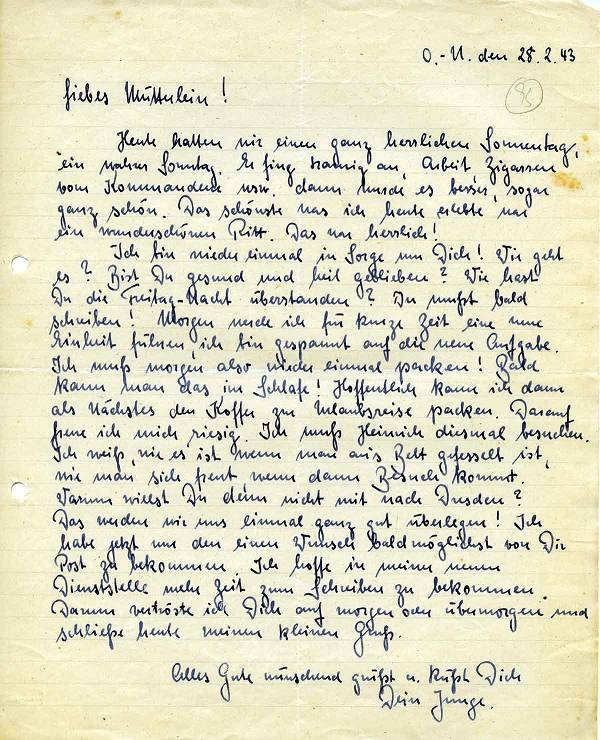 O.-U. den 28.2.43
Liebes Mütterlein!
Heute hatten wir einen ganz herrlichen Sonnentag,
ein wahrer Sonntag. Er fing traurig an, Arbeit, Zigarren
vom Kommandeur usw. dann wurde es besser, sogar
ganz schön. Das schönste was ich heute erlebte war
ein wunderschönen Ritt. Das war herrlich!
Ich bin wieder einmal in Sorge um Dich! Wie geht
es? Bist Du gesund und heil geblieben? Wie hast
Du die Freitag-Nacht überstanden? Du mußt bald
schreiben! Morgen werde ich für kurze Zeit eine neue
Einheit führen, ich bin gespannt auf die neue Aufgabe.
Ich muß morgen also wieder einmal packen! Bald
kann man das im Schlafe! Hoffentlich kann ich dann
als Nächstes den Koffer zur Urlaubsreise packen. Darauf
freue ich mich riesig. Ich muß Heinrich diesmal besuchen.
Ich weiß, wie es ist wenn man ans Bett gefesselt ist,
wie man sich freut, wenn dann Besuch kommt.
Warum willst Du denn nicht mit nach Dresden?
Das werden wir uns einmal ganz gut überlegen! Ich
habe jetzt nur den einen Wunsch baldmöglichst von Dir
Post zu bekommen. Ich hoffe in meiner neuen
Dienststelle mehr Zeit zum Schreiben zu bekommen.
Darum vertröste ich Dich auf morgen oder übermorgen und
schließe heute meinen kleinen Gruß.
Alles Gute wünschend grüßt u. küßt Dich
Dein Junge.